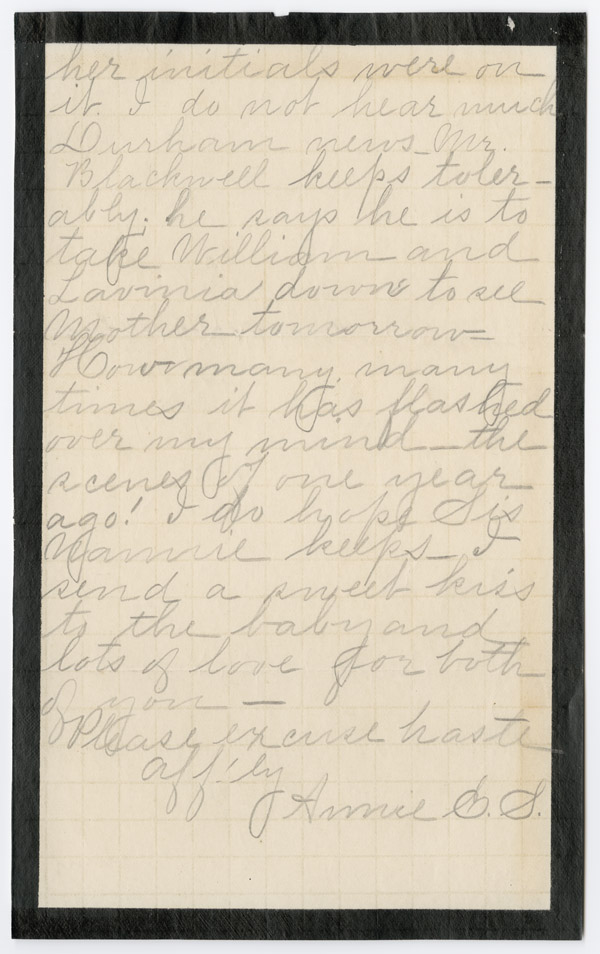 her initials were on
it. I do not hear much
Durham news - Mr.
Blackwell keeps toler-
ably. he says he is to
take William and
Lavinia down to see
Mother tomorrow -
How many, many
times it has flashed
over my mind - the
scenes of one year
ago! I do hope Sis
Nannie keeps - I
send a sweet kiss
to the baby and
lots of love for both
of you -
Please excuse haste
aff'ly
Annie E. S.